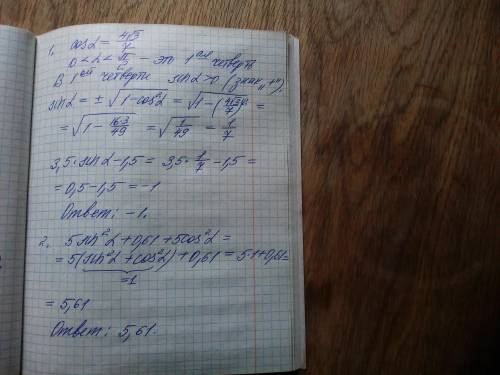 1. cosα = 4√3/7
0 < α < π/2 – это 1ая четверть
В 1ой четверти sinα>0 (знак „+“).
sinα = ± √(1-cos²α) = √(1-(4√3/7)²) =
= √(1 - 16·3/49) = √(1/49) = 1/7
3,5·sinα-1,5 = 3,5·1/7 -1,5 =
= 0,5-1,5 = -1
Ответ: -1.
2. 5sin²α+0,61+5cos²α =
= 5(sin²α+cos²α)+0,61=5·1+0,61=
=1
= 5,61
Ответ: 5,61.